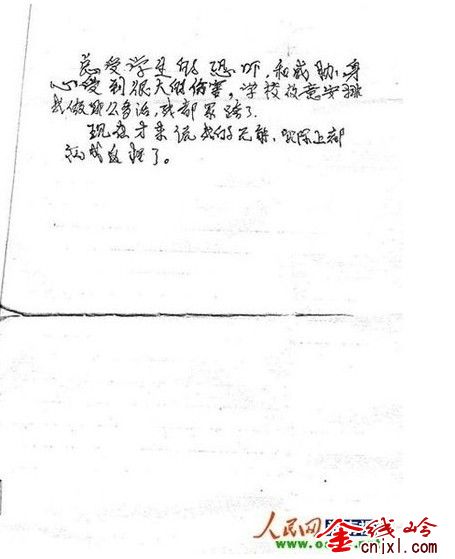 总受学生的恐吓,和威胁,身
心受到很大的伤害,学校故意安排
我做那么多活,我都累路了.
现在才来说我的无能,实际上都
把我逼疯了。
人民网
金线岭
www.oc
cnjxl.com